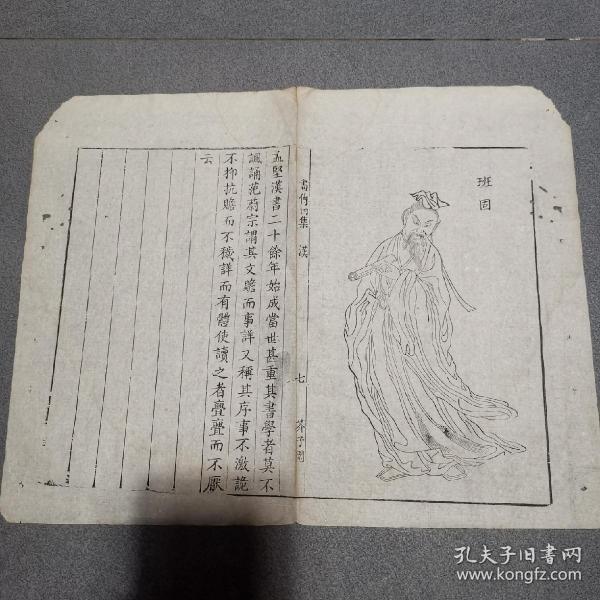 班固
畫傳四集 漢 七 芥子園
孟堅漢書二十餘年始成當世甚重其書學者莫不
諷誦范蔚宗謂其文贍而事詳又稱其序事不激詭
不抑抗贍而不穢詳而有體使讀之者亹亹而不厭
云
孔夫子旧书网
www.kongfz.com